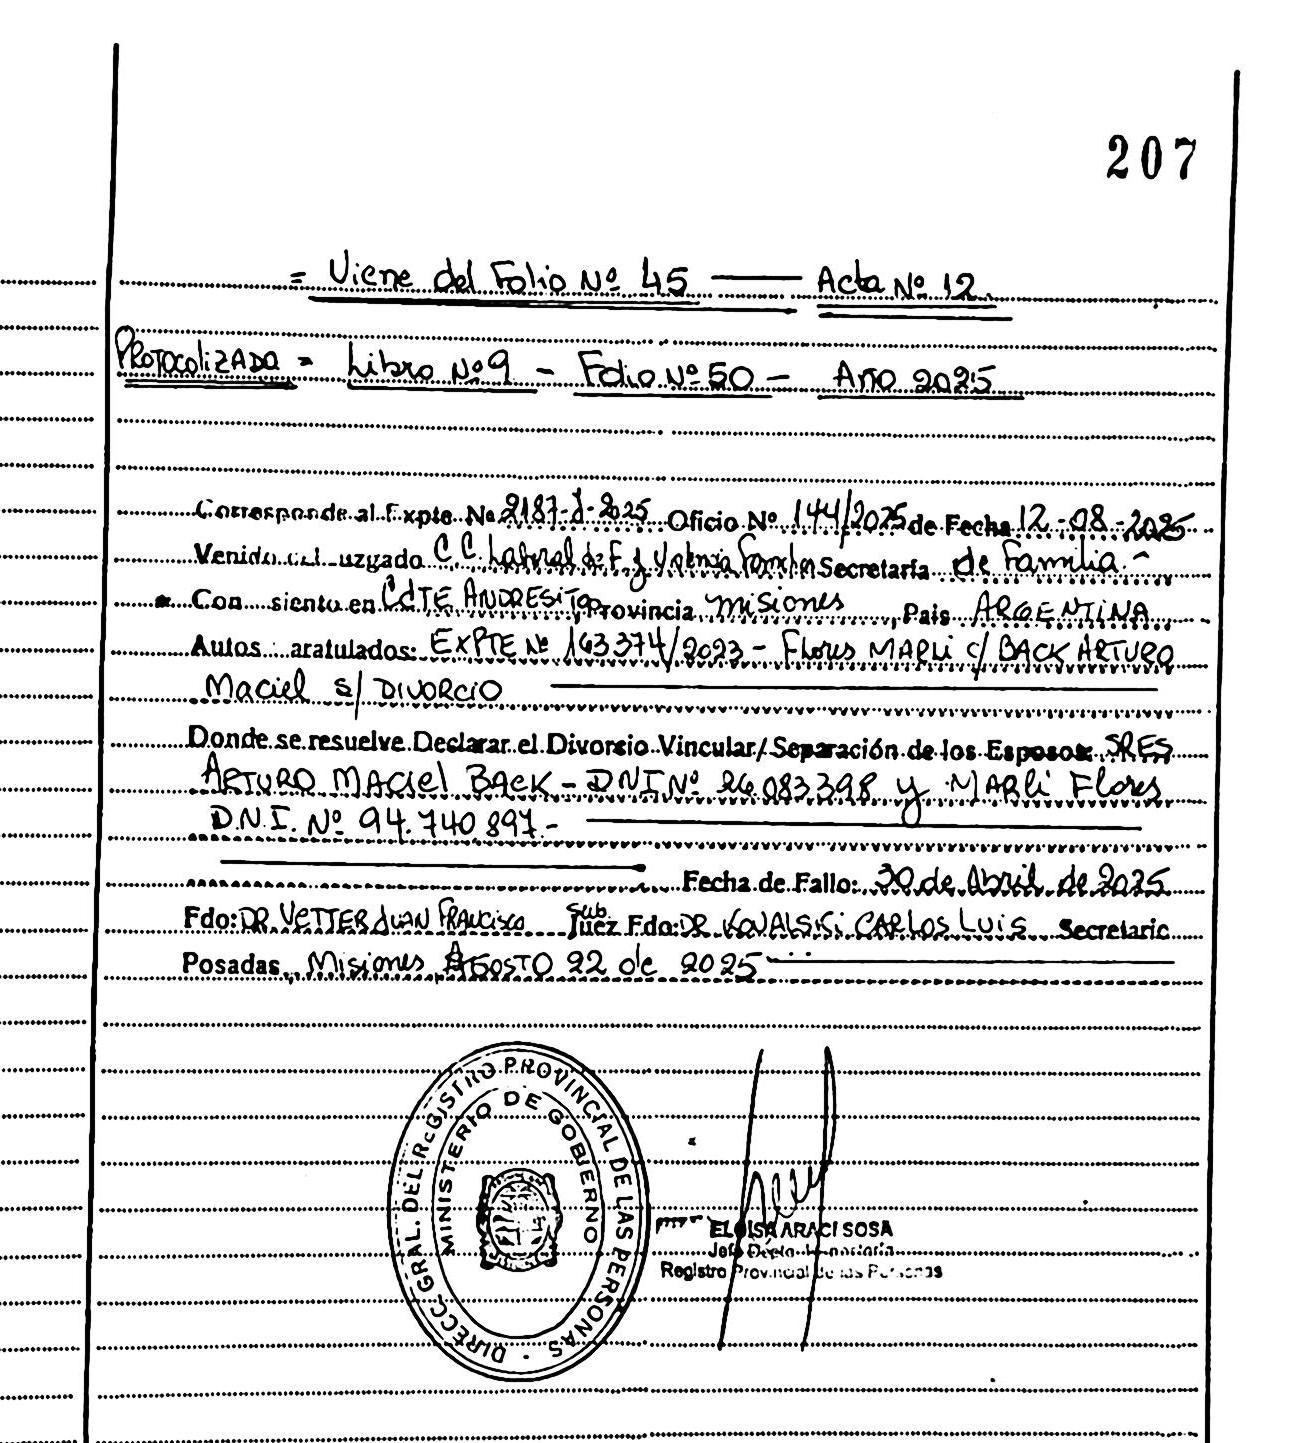 207
= Viene del Folio Nº 45 —— Acta Nº 12.
PROTOCOLIZADA = Libro Nº 9 - Folio Nº 50 - Año 2025
Corresponde al Expte. Nº 2187-J-2025 Oficio Nº 144/2025 de Fecha 12-08-2025
Venido del Juzgado C.C. Laboral de F. y Violencia Familiar Secretaría de Familia.-
Con asiento en CDTE ANDRESITO Provincia misiones, Pais ARGENTINA
Autos caratulados: EXPTE Nº 163374/2023 - Flores MARLi c/ BACK ARTURO
Maciel s/ DIVORCIO
Donde se resuelve Declarar el Divorcio Vincular/Separación de los Esposos: SRES
ARTURO MACIEL BACK - DNI Nº 26.083.398 y MARLi Flores
D.N.I. Nº 94.740.897.-
Fecha de Fallo: 30 de Abril de 2025
Fdo: DR. VETTER JUAN FRANCISCO Sub Juez Fdo: DR KOVALSKI CARLOS LUIS Secretario
Posadas, Misiones, AGOSTO 22 de 2025
DIRECC. GRAL. DEL REGISTRO PROVINCIAL DE LAS PERSONAS
MINISTERIO DE GOBIERNO
ELOISA ARACI SOSA
Jefe Depto.
Registro Provincial de las Personas